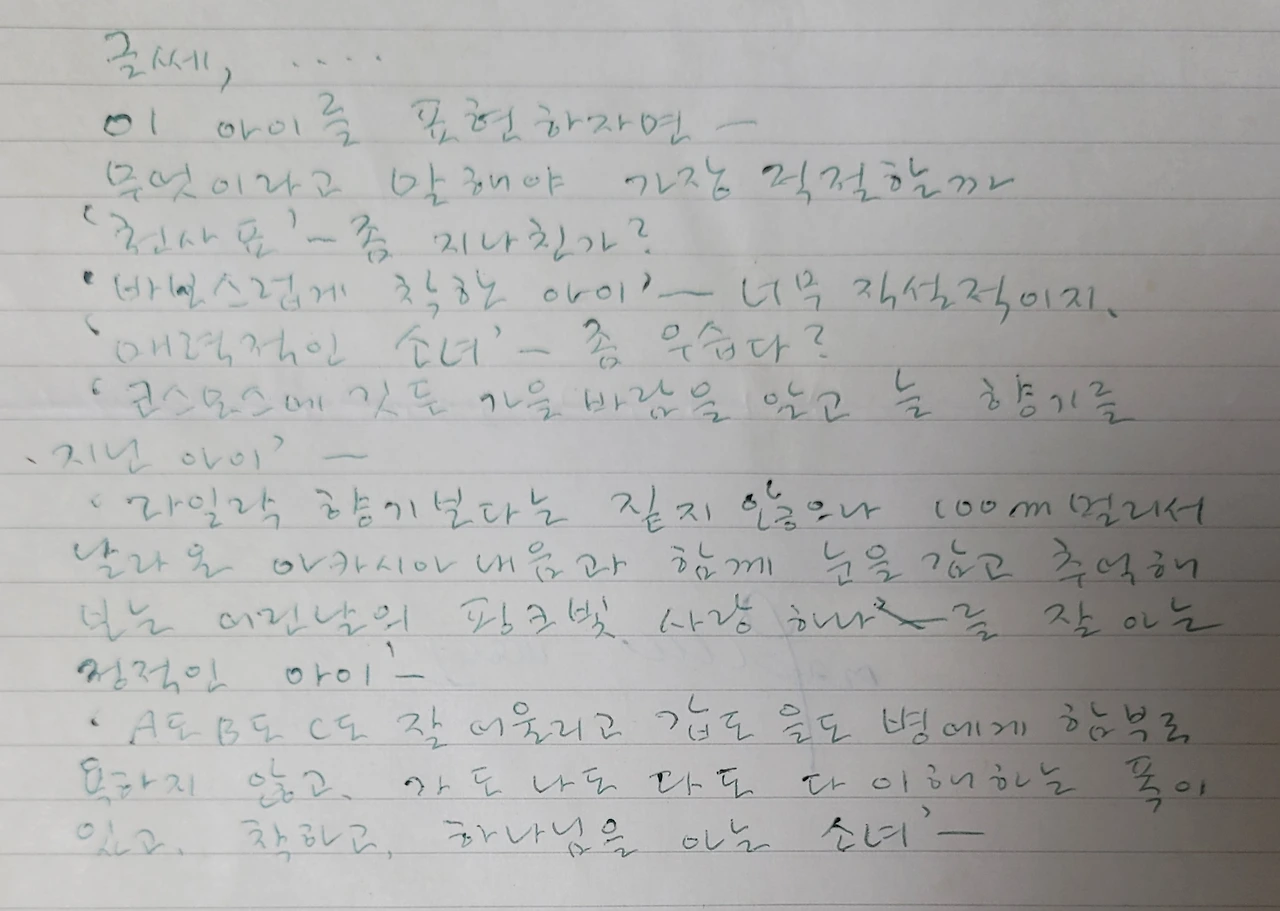 글쎄, ....
이 아이를 표현하자면 —
무엇이라고 말해야 가장 적절할까
'천사표' — 좀 지나친가?
'바보스럽게 착한 아이' — 너무 직설적이지.
'매력적인 소녀' — 좀 우습다?
'코스모스에 깃든 가을바람을 안고 늘 향기를
지닌 아이' —
'라일락 향기보다는 짙지 않으나 100m 멀리서
날라온 아카시아 내음과 함께 눈을 감고 추억해
보는 어린날의 핑크빛 사랑 하나를 잘 아는
정적인 아이' —
'A도 B도 C도 잘 어울리고 갑도 을도 병에게 함부로
욕하지 않고, 가도 나도 다도 다 이해하는 폭이
있고, 착하고, 하나님을 아는 소녀' —